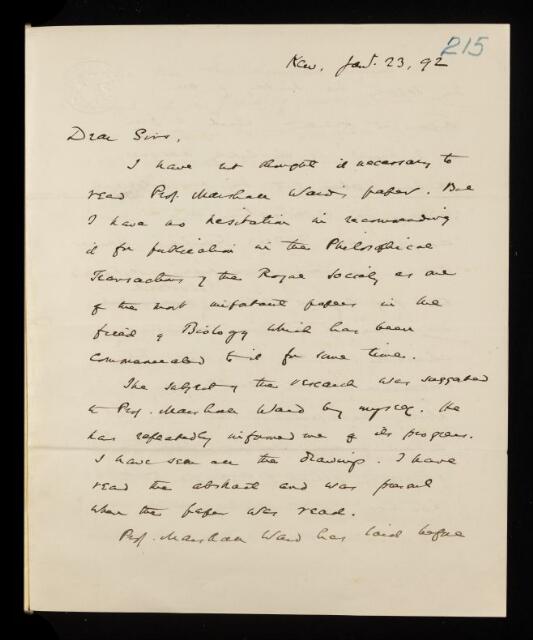 215
Kew. Jan. 23, 92
Dear Sirs,
I have not thought it necessary to
read Prof. Marshall Ward's paper. But
I have no hesitation in recommending
it for publication in the Philosophical
Transactions of the Royal Society as one
of the most important papers in the
field of Biology which has been
communicated to it for some time.
The subject of the research was suggested
to Prof. Marshall Ward by myself. He
has repeatedly informed me of its progress.
I have seen all the drawings. I have
read the abstract and was present
when the paper was read.
Prof. Marshall Ward has laid before